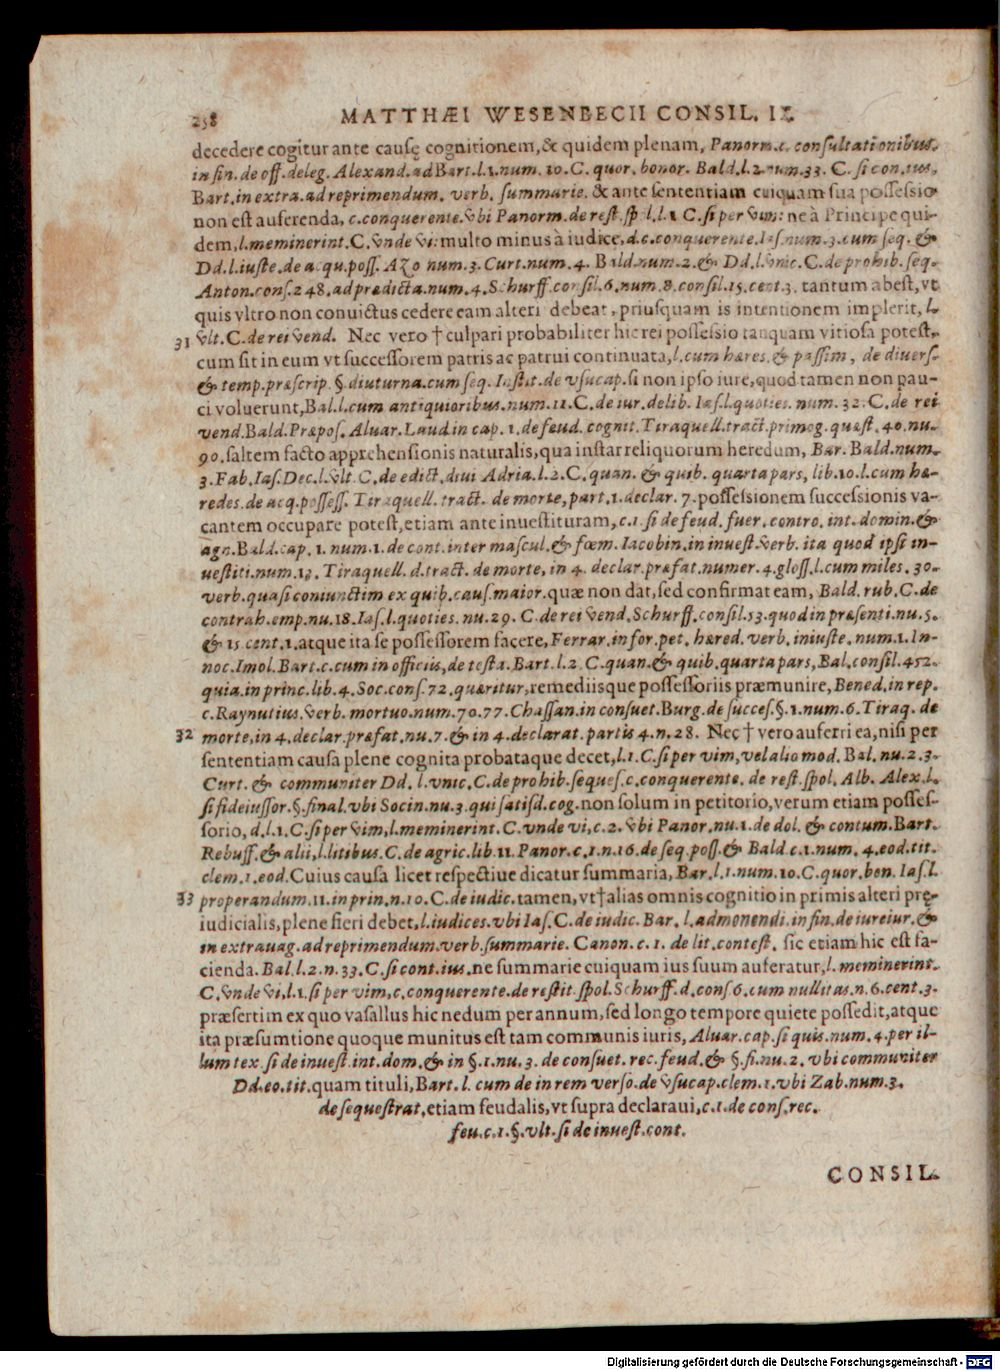 258 MATTHÆI WESENBECII CONSIL. II.
decedere cogitur ante causę cognitionem, & quidem plenam, Panorm. c. consultationibus.
in fin. de off. deleg. Alexand. ad Bart. l. 1. num. 10. C. quor. bonor. Bald. l. 2. num. 33. C. si con. ius.
Bart. in extra. ad reprimendum. verb. summarie. & ante sententiam cuiquam sua possessio
non est auferenda, c. conquerente. vbi Panorm. de rest. spol. l. 1 C. si per vim: ne à Principe qui-
dem, l. meminerint. C. vnde vi: multo minus à iudice, d. c. conquerente. Ias. num. 3. cum seq. &
Dd. l. iuste. de acqu. poss. Azo num. 3. Curt. num. 4. Bald. num. 2. & Dd. l. vnic. C. de prohib. seq.
Anton. cons. 248. ad prædicta. num. 4. Schurff. consil. 6. num. 8. consil. 15. cent. 3. tantum abest, vt
quis vltro non conuictus cedere eam alteri debeat, priusquam is intentionem implerit, l.
31 vlt. C. de rei vend. Nec vero † culpari probabiliter hic rei possessio tanquam vitiosa potest,
cum sit in eum vt successorem patris ac patrui continuata, l. cum hæres. & passim, de diuers.
& temp. præscrip. §. diuturna. cum seq. Instit. de vsucap. si non ipso iure, quod tamen non pau-
ci voluerunt, Bal. l. cum antiquioribus. num. 11. C. de iur. delib. Ias. l. quoties. num. 32. C. de rei
vend. Bald. Præpos. Aluar. Laud in cap. 1. de feud. cognit. Tiraquell. tract. primog. quæst. 40. nu.
90. saltem facto apprehensionis naturalis, qua instar reliquorum heredum, Bar. Bald. num.
3. Fab. Ias. Dec. l. vlt. C. de edict. diui Adria. l. 2. C. quan. & quib. quarta pars, lib. 10. l. cum hæ-
redes. de acq. possess. Tiraquell. tract. de morte, part. 1. declar. 7. possessionem successionis va-
cantem occupare potest, etiam ante inuestituram, c. 1. si de feud. fuer. contro. int. domin. &
agn. Bald. cap. 1. num. 1. de cont. inter mascul. & fœm. Iacobin. in inuest. verb. ita quod ipsi in-
uestiti. num. 13. Tiraquell. d. tract. de morte, in 4. declar. præfat. numer. 4. gloss. l. cum miles. 30.
verb. quasi coniunctim ex quib. caus. maior. quæ non dat, sed confirmat eam, Bald. rub. C. de
contrah. emp. nu. 18. Ias. l. quoties. nu. 29. C. de rei vend. Schurff. consil. 53. quod in præsenti. nu. 5.
& 15 cent. 1. atque ita se possessorem facere, Ferrar. in for. pet. hæred. verb. iniuste. num. 1. In-
noc. Imol. Bart. c. cum in officiis, de testa. Bart. l. 2 C. quan. & quib. quarta pars, Bal. consil. 452.
quia. in princ. lib. 4. Soc. cons. 72. quæritur, remediisque possessoriis præmunire, Bened. in rep.
c. Raynutius. verb. mortuo. num. 70. 77. Chassan. in consuet. Burg. de succes. §. 1. num. 6. Tiraq. de
32 morte, in 4. declar. præfat. nu. 7. & in 4. declarat. partis 4. n. 28. Nec † vero auferri ea, nisi per
sententiam causa plene cognita probataque decet, l. 1. C. si per vim, vel alio mod. Bal. nu. 2. 3.
Curt. & communiter Dd. l. vnic. C. de prohib. seques. c. conquerente. de rest. spol. Alb. Alex. l.
si fideiussor. §. final. vbi Socin. nu. 3. qui satisd. cog. non solum in petitorio, verum etiam posses-
sorio, d. l. 1. C. si per vim, l. meminerint. C. vnde vi, c. 2. vbi Panor. nu. 1. de dol. & contum. Bart.
Rebuff. & alii, l. litibus. C. de agric. lib. 11. Panor. c. 1. n. 16. de seq. poss. & Bald c. 1. num. 4. eod. tit.
clem. 1. eod. Cuius causa licet respectiue dicatur summaria, Bar. l. 1. num. 10. C. quor. bon. Ias. l.
33 properandum. 11. in prin. n. 10. C. de iudic. tamen, vt † alias omnis cognitio in primis alteri prę-
iudicialis, plene fieri debet, l. iudices. vbi Ias. C. de iudic. Bar. l. admonendi. in fin. de iureiur. &
in extrauag. ad reprimendum. verb. summarie. Canon. c. 1. de lit. contest. sic etiam hic est fa-
cienda. Bal. l. 2. n. 33. C. si cont. ius. ne summarie cuiquam ius suum auferatur, l. meminerint.
C. vnde vi, l. 1. si per vim, c. conquerente. de restit. spol. Schurff. d. cons 6. cum nullitas. n. 6. cent. 3.
præsertim ex quo vasallus hic nedum per annum, sed longo tempore quiete possedit, atque
ita præsumtione quoque munitus est tam communis iuris, Aluar. cap. si quis. num. 4. per il-
lum tex. si de inuest. int. dom. & in §. 1. nu. 3. de consuet. rec. feud. & §. fi. nu. 2. vbi communiter
Dd. eo. tit. quam tituli, Bart. l. cum de in rem verso. de vsucap. clem. 1. vbi Zab. num. 3.
de sequestrat, etiam feudalis, vt supra declaraui, c. 1. de cons. rec.
feu. c. 1. §. vlt. si de inuest. cont.
CONSIL.
Digitalisierung gefördert durch die Deutsche Forschungsgemeinschaft - DFG